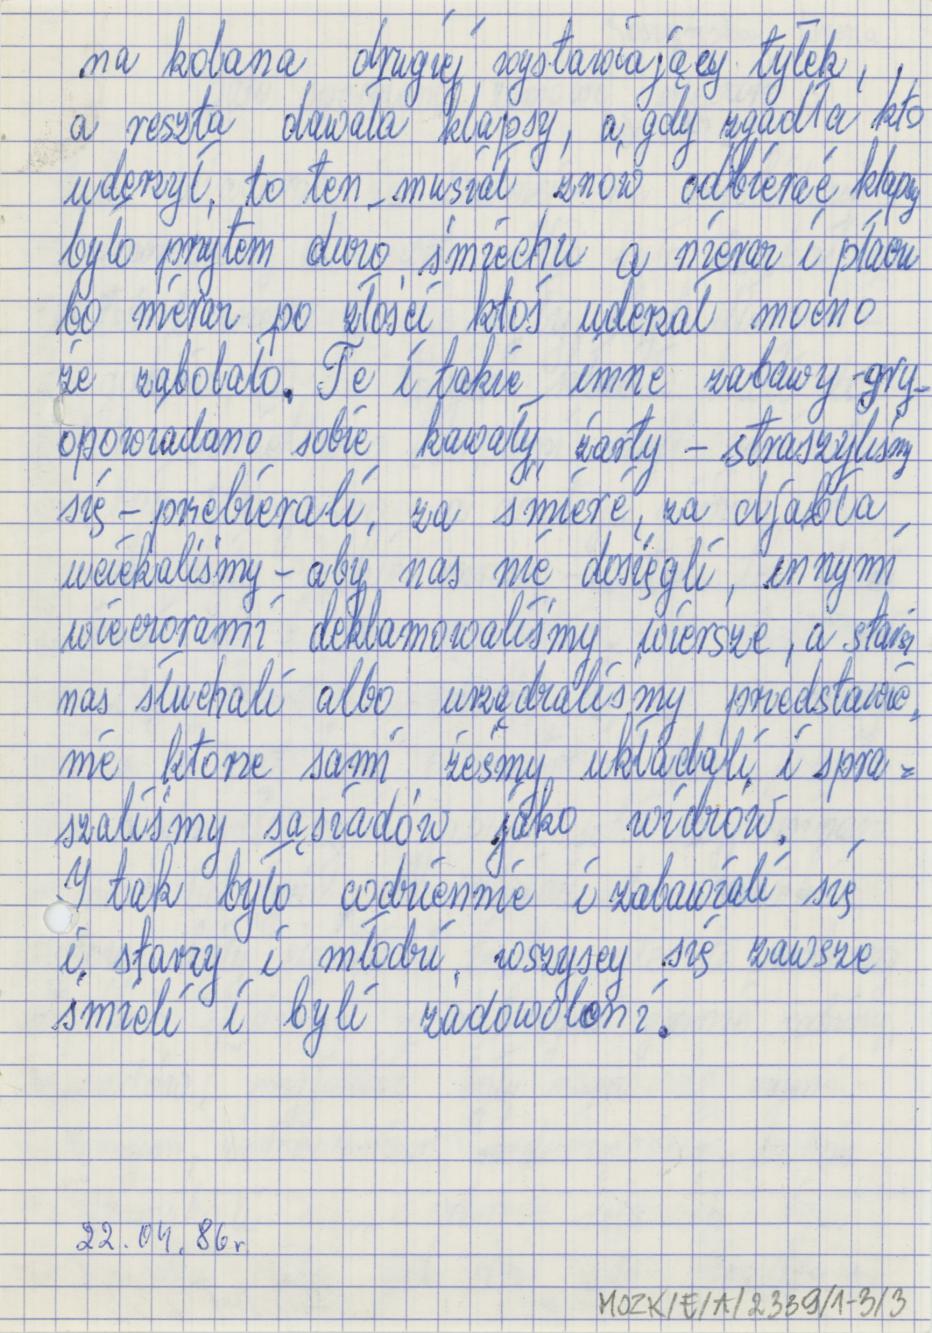 na kolana drugiej wystawiający tyłek,
a reszta dawała klapsy, a gdy zgadła kto
uderzył, to ten musiał znów odbierać klapsy
było przytem dużo śmiechu a nieraz i płaczu
bo nieraz po złości ktoś uderzał mocno
że zabolało. Te i takie inne zabawy-gry-
opowiadano sobie kawały, żarty – straszyliśmy
się – przebierali, za śmierć, za djabła,
uciekaliśmy – aby nas nie dosięgli, innymi
wieczorami deklamowaliśmy wiersze, a starsi
nas słuchali albo urządzaliśmy przedstawie-
nie ktore sami żeśmy układali i spra=
szaliśmy sąsiadów jako widzów.
I tak było codziennie i zabawiali się
i starzy i młodzi, wszyscy się zawsze
śmieli i byli zadowoloni.
22.04.86r.
MOZK/E/A/2339/1-3/3